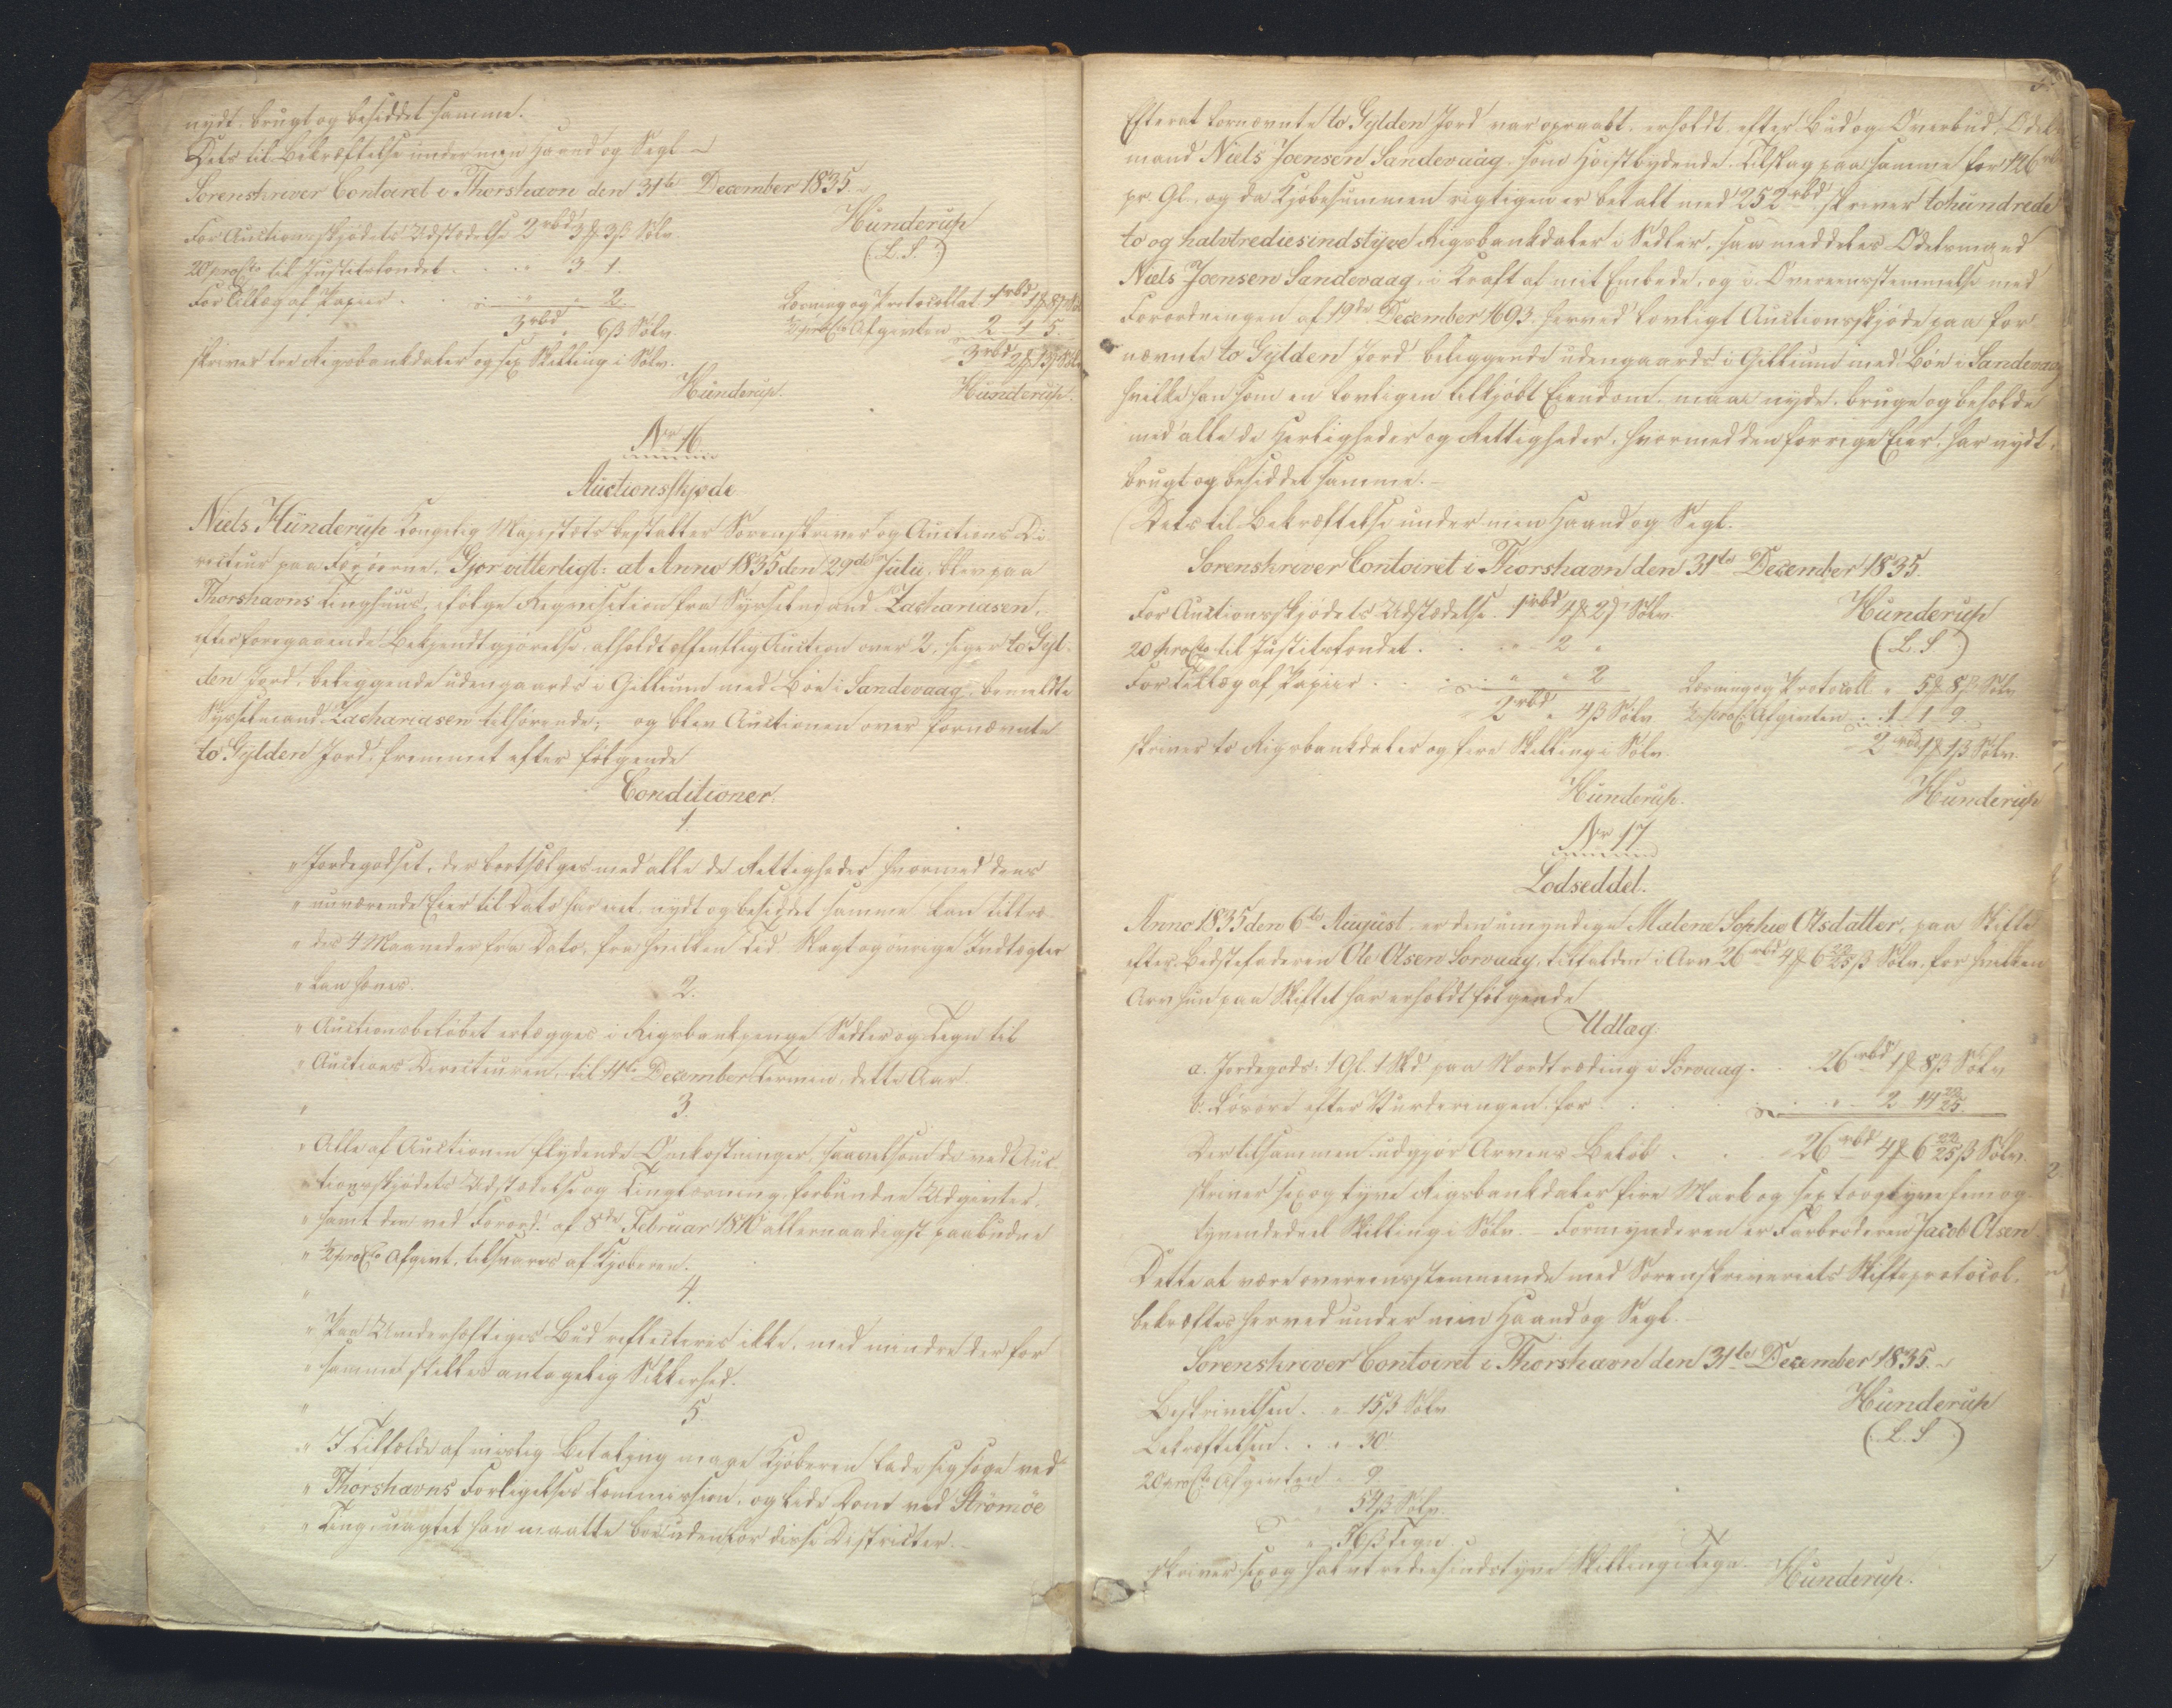 nydt, brugt og besiddet samme.
Dets til Bekræftelse under min Haand og Segl.
Sorenskriver Contoiret i Thorshavn den 31te December 1835.
Hunderup
(L. S.)
For Auctionsskjødets Udstædelse 2 rbd 3 ₰ 3 ß Sølv
20 proCto til Justitsfondet . . . " 3 - 1.
For Tillæg af Papir . . " " 2.
3 rbd " 6 ß Sølv.
skriver tre Rigsbankdaler og sex Skilling i Sølv.
Hunderup.
Læsning og Protocollat 1 rbd 1 ₰ 8 ß Sølv
½ proCto Afgivten 2 - 1 - 5.
3 rbd 2 ₰ 13 ß Sølv
Hunderup.
Nr 16.
Auctionsskjøde
Niels Hunderup Kongelig Majestæts bestalter Sorenskriver og Auctions Di-
recteur paa Færøerne, Gjør vitterligt: at Anno 1835 den 29de Julii, blev paa
Thorshavns Tinghuus, ifølge Reqvisition fra Sysselmand Zachariasen,
efter foregaaende Bekjendtgjørelse, afholdt offentlig Auction over 2, siger to Gyl-
den Jord, beliggende udengaards i Gillium med Bøe i Sandevaag, bemeldte
Sysselmand Zachariasen tilhørende; og blev Auctionen over fornævnte
to Gylden Jord, fremmet efter følgende
Conditioner.
1.
" Jordegodset, der bortsælges med alle de Rettigheder hvormed dens
" nuværende Eier til Dato har eiet, nydt og besiddet samme kan tiltræ-
" des 4 Maaneder fra Dato, fra hvilken Tid Slagt og øvrige Indtægter
" kan hæves.
2.
" Auctionsbeløbet erlægges i Rigsbankpenge Sedler og Tegn til
" Auctions Directeuren, til 11te December Termin, dette Aar.
3.
" Alle af Auctionen flydende Omkostninger, saavelsom de ved Auc-
" tionsskjødets Udstædelse og Tinglæsning forbundne Udgivter,
" samt den ved Forord: af 8de Februar 1810 allernaadigst paabudne
" ½ proCto Afgivt, tilsvares af Kjøberen.
4.
" Paa Uvederhæftiges Bud reflecteres ikke, med mindre der for
" samme stilles antagelig Sikkerhed.
5.
" I Tilfælde af mislig Betaling maae Kjøberen lade sig søge ved
" Thorshavns Forligelses Commission, og lide Dom ved Strömöe
" Ting, uagtet han maatte boe udenfor disse Districter.
Efterat fornævnte to Gylden Jord var opraabt, erholdt, efter Bud og Overbud, Odels-
mand Niels Joensen Sandevaag, som Høistbydende, Tilslag paa samme for 126 rbd
pr. Gl, og da Kjøbesummen rigtigen er betalt med 252 rbd, skriver tohundrede
to og halvtrediesindstyve Rigsbankdaler i Sedler, saa meddeles Odelsmand
Niels Joensen Sandevaag, i Kraft af mit Embede, og i Overeensstemmelse med
Forordningen af 19de December 1693, herved lovligt Auctionsskjøde paa for-
nævnte to Gylden Jord beliggende udengaards i Gillium med Bøe i Sandevaag
hvilke han som en lovligen tilkjøbt Eiendom, maae nyde, bruge og beholde
med alle de Herligheder og Rettigheder, hvormed den forrige Eier, har nydt,
brugt og besiddet samme. -
Dets til Bekræftelse under min Haand og Segl.
Sorenskriver Contoiret i Thorshavn den 31te December 1835.
Hunderup
(L. S.)
For Auctionsskjødets Udstædelse 1 rbd 4 ₰ 2 ß Sølv.
20 proCto til Justitsfondet . . . " 2 "
For Tillæg af Papir . . . " " 2
2 rbd " 4 ß Sølv
skriver to Rigsbankdaler og fire Skilling i Sølv.
Hunderup.
Læsning og Protocoll " 5 ₰ 8 ß Sølv
½ proC: Afgivten . 1 - 1 - 9.
2 rbd 1 ₰ 1 ß Sølv.
Hunderup
Nr 17
Lodseddel.
Anno 1835 den 6te August, er den umyndige Malene Sophie Olsdatter, paa Skifte
efter Bedstefaderen Ole Olsen Sorvaag, tilfalden i Arv 26 rbd 4 ₰ 6 22/25 ß Sølv, for hvilken
Arv hun paa Skiftet har erholdt følgende
Udlæg.
a. Jordegods: 1 Gl. 1 Skd. paa Nordtræding i Sorvaag . . 26 rbd 1 ₰ 8 ß Sølv
b. Løsøre efter Vurderingen, for . . . " 2 14 22/25.
Der tilsammen udgjør Arvens Beløb . . 26 rbd 4 ₰ 6 22/25 ß Sølv.
skriver sex og tyve Rigsbankdaler fire Mark og sex to og tyve fem og
tyvendedeel Skilling i Sølv. - Formynderen er Farbroderen Jacob Olsen
Dette at være overeensstemmende med Sorenskriveriets Skifteprotocol,
bekræftes herved under min Haand og Segl. -
Sorenskriver Contoiret i Thorshavn den 31te December 1835.
Hunderup
(L. S.)
Beskrivelsen . . " 15 ß Sølv
Bekræftelsen . . " 30.
20 proCto Afgivten " 9.
" 54 ß Sølv.
" 56 ß Tegn
skriver sex og halvtrediesindstyve Skilling i Tegn.
Hunderup.